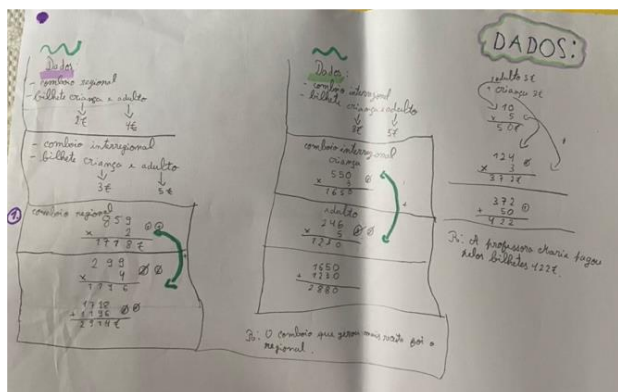 Dados:
- comboio regional
- bilhete criança e adulto
2€ 4€
- comboio interregional
- bilhete criança e adulto
3€ 5€
1.
comboio regional
859
x 2
1718€
299
x 4
1196
1718
+ 1196
2914€
Dados:
- comboio interregional
- bilhete criança e adulto
3€ 5€
comboio interregional
criança
550
x 3
1650
adulto
246
x 5
1230
1650
+ 1230
2880
R: O comboio que gerou mais receita foi o
regional.
DADOS:
adulto 5€
criança 3€
10
x 5
50€
124
x 3
372€
372
+ 50
422
R: A professora Maria pagou
pelos bilhetes 422€.